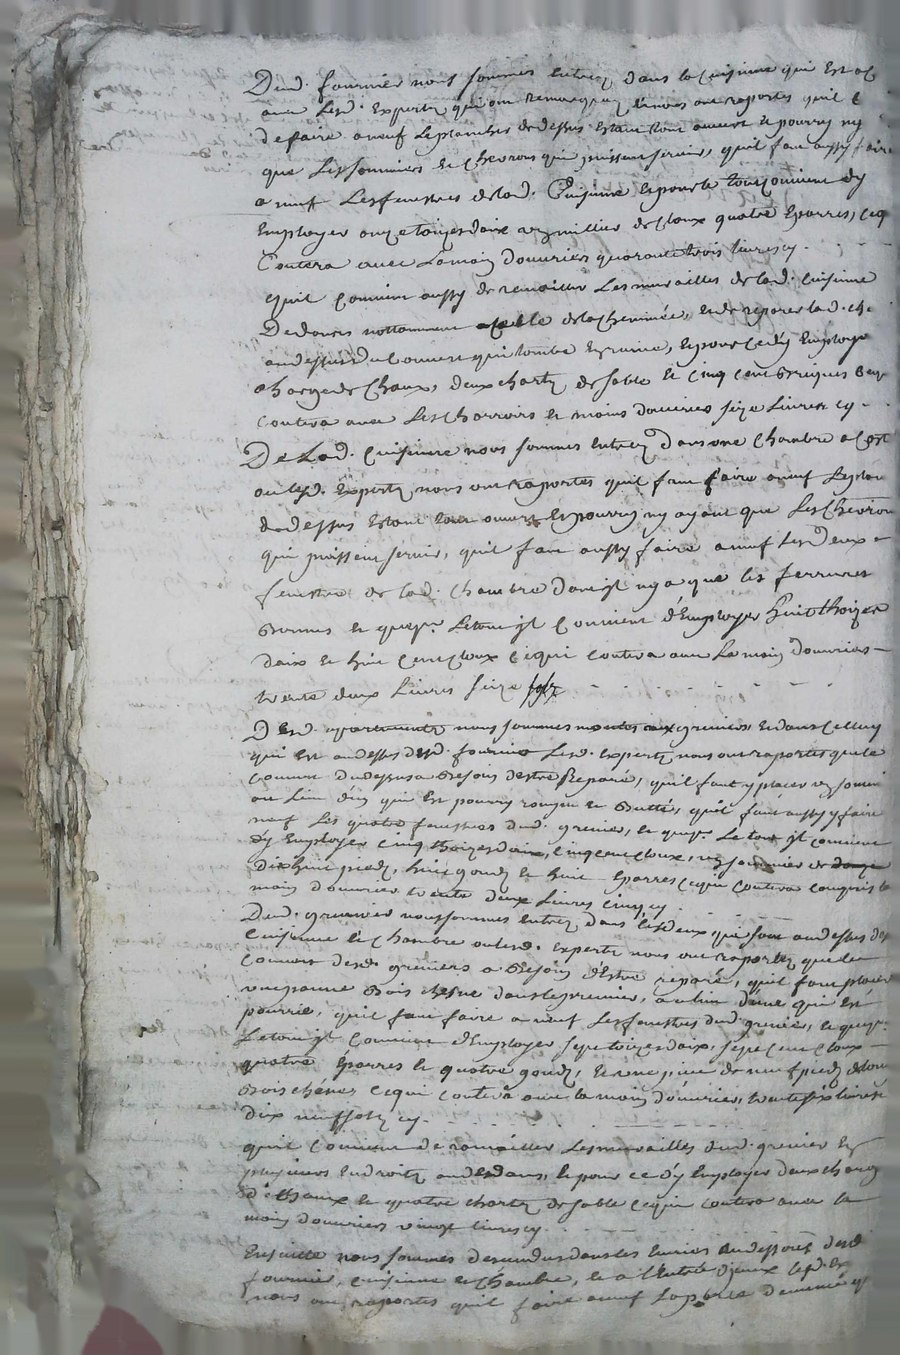 Dud. fournier nous sommes entrez dans la Cuisinne qui est a c
avec Lesd. Expertz qui ont remarquez et nous ont raportés quil e
de faire a neuf Les planches de dessus estant tout ouvert et pourry ny
que Les sommiers et chevrons qui puissent servir, quil faut aussy faire
a neuf Les fenestres de lad. Cuisinne et pour le tout convient dy
Employer onze toizes daix un millier de cloux quatre Eparres, ce q
Coutera avec La main douvriers quarante trois livres cy.
quil convient aussy de remailler Les murailles de lad. Cuisinne
De dans nottamment celle de la cheminée, et de reparer lad. ch.
au dessus du Couvert qui tombe En ruine, et pour ce dy Employer
charge de Chaux, deux chartz de sable et cinq cent briques ce q
coutera avec Les charrois et mains douvriers seize Livres cy.
De Lad. Cuisinne nous sommes entrez dans une Chambre a cost
ou lesd. Expertz nous ont raportés quil faut faire a neuf Le plan
de dessus Estant tout ouvert et pourry ny ayant que Les Chevrons
qui puissent servir, quil faut aussy faire a neuf Les deux
fenestres de lad. Chambre dont il ny a que les ferrures
bonnes et que pr. Le tout il convient d'Employer huit thoizes
daix et huit cent cloux ce qui coutera avec La main douvriers
trente deux Livres seize solz
Desd. appartements nous sommes montés aux greniers, et dans celluy
qui est au dessus dud. fournier Lesd. Expertz nous ont raportés que le
couvert du dessus a besoin destre Reparé, quil faut y placer un somm
au Lieu d'un qui est pourry rompu et butté, quil faut aussy y faire
neuf Les quatre fenestres dud. grenier, et que pr. Le tout il convient
dy Employer cinq thoizes daix, cinq cent cloux, un sommier de
dix huit piedz, huit gondz et huit Eparres ce qui coutera compris la
main douvriers trente deux Livres cinq cy.
Dud. grenier nous sommes entrez dans les deux qui sont au dessus de
Cuisinne et Chambre ou lesd. Expertz nous ont raportez que le
couvert desd. greniers a besoin d'Estre reparé, quil faut placer
une panne bois chesne dans le premier, au lieu d'une qui est
pourrie, quil faut faire a neuf Les fenestres dud. grenier, et que pr.
Le tout il Convient d'Employer sept toizes daix, sept cent cloux
quatre Eparres et quatre gondz, et une piece de neuf piedz de lon
bois chene, ce qui coutera avec la main d'ouvriers, trente six livres
dix neuf solz cy.
quil convient de remailler Les murailles dud. grenier En
plusieurs Endroitz au dedans, et pour ce d'y Employer deux charg
de Chaux et quatre chartz de sable ce qui coutera avec la
main douvriers vingt livres cy.
Ensuitte nous sommes descendus dans les Ecuries au dessous dud.
fournier, cuisinne et chambre, et a l'Entrée d'icelle lesd. Ex
nous ont raportés quil faire a neuf La porte d'entrée